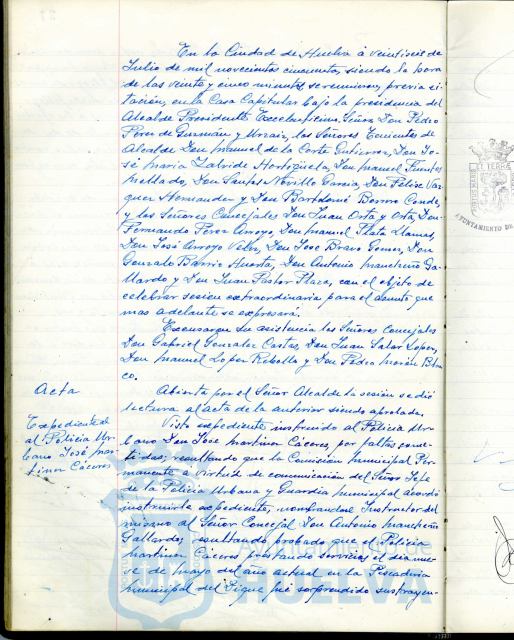 En la Ciudad de Huelva á veintiseis de
Julio de mil novecientos cincuenta, siendo la hora
de las veinte y cinco minutos, se reunieron, previa ci-
tación, en la Casa Capitular bajo la presidencia del
Alcalde Presidente Excelentisimo Señor Don Pedro
Perez de Guzmán y Urzaiz, los Señores Tenientes de
Alcalde Don Manuel de la Corte Gutierrez, Don Jo-
sé Maria Zalvide Hortigüela, Don Manuel Fuentes
Mellado, Don Santos Novillo Garcia, Don Felix Vaz-
quez Hernandez y Don Bartolomé Borrero Conde,
y los Señores Concejales Don Juan Orta y Orta, Don
Fernando Perez Arroyo, Don Manuel Plata Llamas,
Don José Arroyo Velez, Don José Bravo Gomez, Don
Gonzalo Barriz Huerta, Don Antonio Mancheño Ga-
llardo y Don Juan Pastor Plaza, con el objeto de
celebrar sesión extraordinaria para el asunto que
mas adelante se expresará.
Excusaron su asistencia los Señores Concejales
Don Gabriel Gonzalez Cortes, Don Juan Salas Lopez,
Don Manuel Lopez Rebollo y Don Pedro Morón Blan-
co.
Acta
Abierta por el Señor Alcalde la sesión se dió
lectura al acta de la anterior siendo aprobada.
Expediente al
al Policia Ur-
bano José Mar-
tinez Cáceres
Visto expediente instruido al Policia Ur-
bano Don José Martinez Cáceres, por faltas come-
tidas; resultando que la Comisión Municipal Per-
manente a virtud de comunicación del Señor Jefe
de la Policia Urbana y Guardia Municipal acordó
instruirle expediente, nombrandose Instructor del
mismo al Señor Concejal Don Antonio Mancheño
Gallardo; resultando probado que el Policia
Martinez Cáceres prestando servicio el dia nue-
ve de Mayo del año actual en la Pescaderia
Municipal del Dique fué sorprendido sustrayen-
HUELVA
AYUNTAMIENTO DE